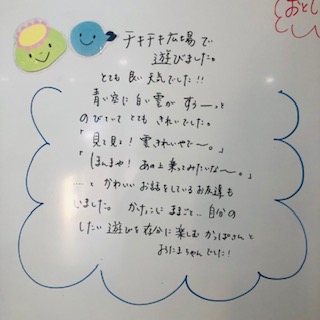 チキチキ広場で
遊びました。
とても良い天気でした!!
青い空に白い雲がすぅーっと
のびていてとてもきれいでした。
「見て見て!雲きれいやで〜。」
「ほんまや!あの上乗ってみたいな〜。」
…とかわいいお話をしているお友達も
いました。かけっこにままごと…自分の
したい遊びを存分に楽しむかっぱさんと
おたまちゃんでした!